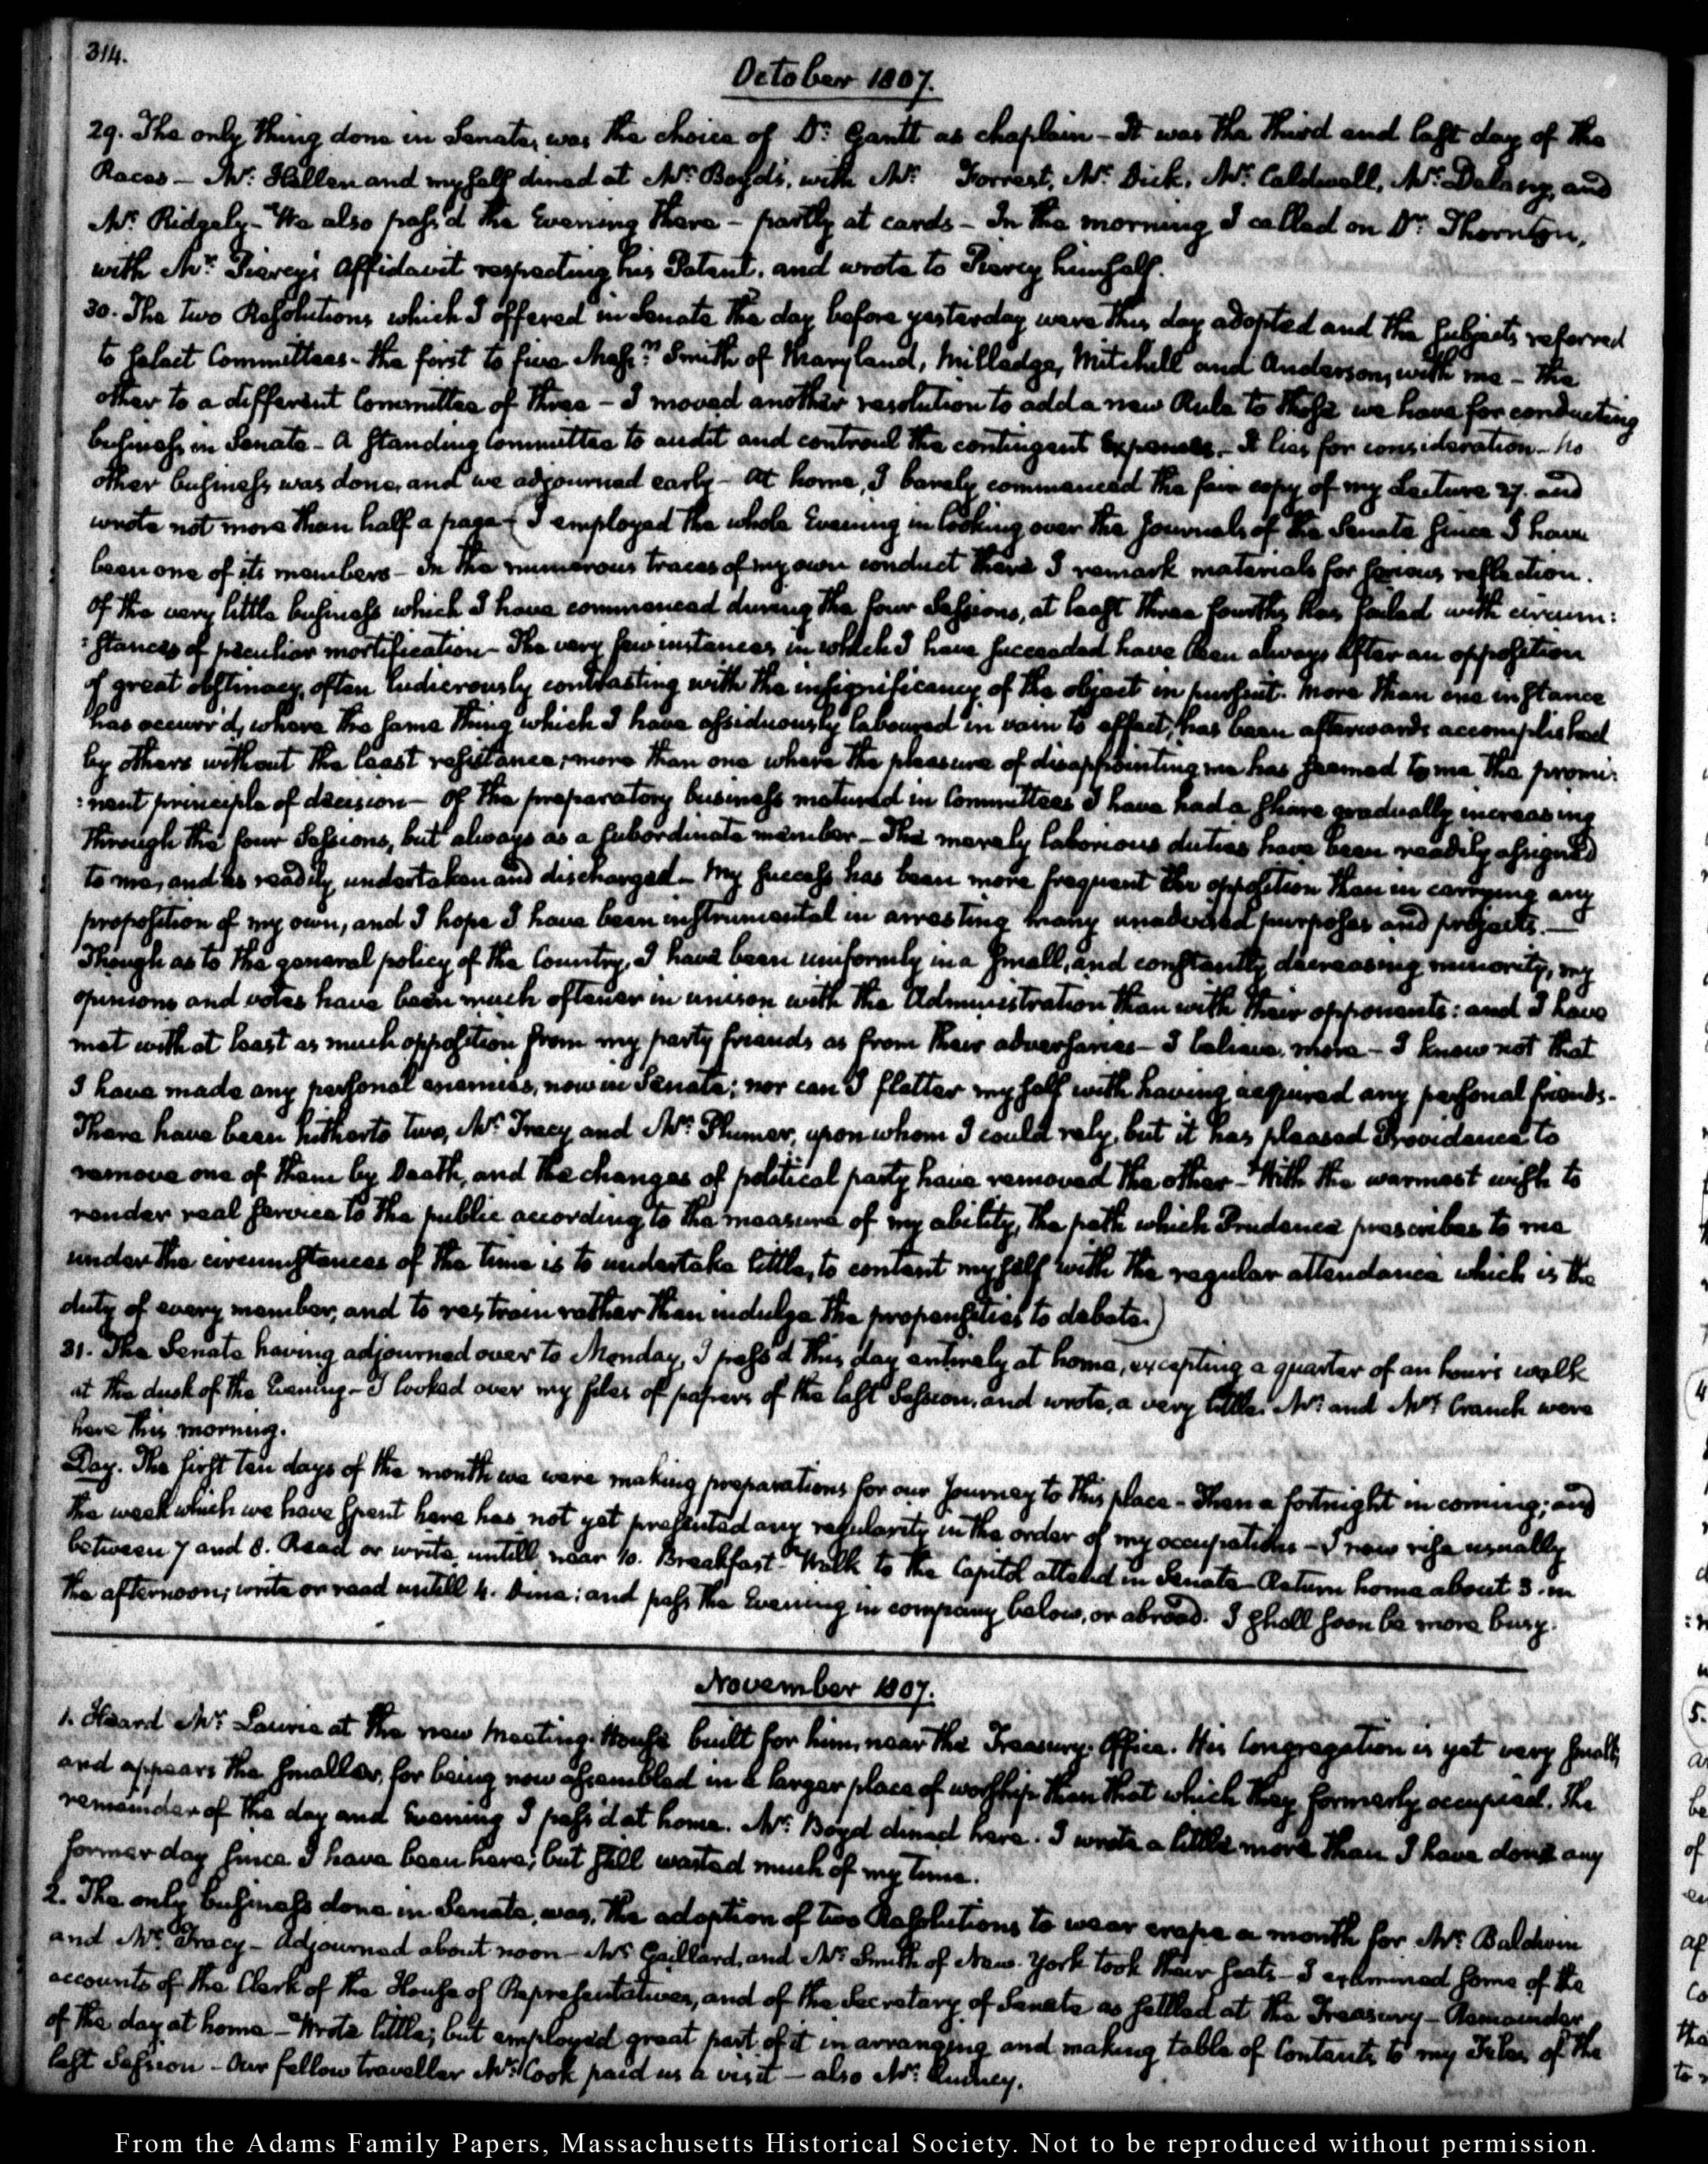 314.
October 1807.
29. The only thing done in Senate, was the choice of Dr. Gantt as chaplain - It was the third and last day of the
Races - Mr. Hellen and myself dined at Mr. Boyd's, with Mr. Forrest, Mr. Dick, Mr. Caldwell, Mr. Delany, and
Mr. Ridgely - We also pass'd the Evening there - partly at cards - In the morning I called on Dr. Thornton,
with Mr. Piercy's Affidavit respecting his Patent, and wrote to Piercy himself.
30. The two Resolutions which I offered in Senate the day before yesterday were this day adopted and the subjects referred
to select Committees - the first to five Messrs. Smith of Maryland, Milledge, Mitchill and Anderson, with me - the
other to a different Committee of three - I moved another resolution to add a new Rule to those we have for conducting
business in Senate - A standing Committee to audit and controul the contingent Expenses - It lies for consideration - No
other business was done, and we adjourned early - At home, I barely commenced the fair copy of my Lecture 27. and
wrote not more than half a page - (I employed the whole Evening in looking over the Journals of the Senate since I have
been one of its members - In the numerous traces of my own conduct there I remark materials for serious reflection.
Of the very little business which I have commenced during the four Sessions, at least three fourths has failed with circum:
:stances of peculiar mortification - The very few instances in which I have succeeded have been always after an opposition
of great obstinacy, often ludicrously contrasting with the insignificancy of the object in pursuit. More than one instance
has occurr'd, where the same thing which I have assiduously laboured in vain to effect, has been afterwards accomplished
by others without the least resistance; more than one where the pleasure of disappointing me has seemed to me the promi:
:nent principle of decision - Of the preparatory business matured in Committees I have had a share gradually increasing
through the four Sessions, but always as a subordinate member - The merely laborious duties have been readily assigned
to me, and as readily undertaken and discharged - My success has been more frequent in opposition than in carrying any
proposition of my own, and I hope I have been instrumental in arresting many unadvised purposes and projects. -
Though as to the general policy of the Country, I have been uniformly in a small, and constantly decreasing minority, my
opinions and votes have been much oftener in unison with the Administration than with their opponents: and I have
met with at least as much opposition from my party friends as from their adversaries - I believe, more - I know not that
I have made any personal enemies, now in Senate; nor can I flatter myself with having acquired any personal friends.
There have been hitherto two, Mr. Tracy and Mr. Plumer, upon whom I could rely, but it has pleased Providence to
remove one of them by Death, and the changes of political party have removed the other - With the warmest wish to
render real service to the public according to the measure of my ability, the path which Prudence prescribes to me
under the circumstances of the time is to undertake little, to content myself with the regular attendance which is the
duty of every member, and to restrain rather than indulge the propensities to debate.)
31. The Senate having adjourned over to Monday, I pass'd this day entirely at home, excepting a quarter of an hour's walk
at the dusk of the Evening - I looked over my files of papers of the last Session, and wrote, a very little. Mr. and Mrs. Cranch were
here this morning.
Day. The first ten days of the month we were making preparations for our Journey to this place - Then a fortnight in coming; and
the week which we have spent here has not yet presented any regularity in the order of my occupations - I now rise usually
between 7 and 8. Read or write, untill near 10. Breakfast - Walk to the Capitol attend in Senate - Return home about 3. in
the afternoon; write or read untill 4. Dine: and pass the Evening in company below, or abroad. I shall soon be more busy.
November 1807.
1. Heard Mr. Laurie at the new Meeting-House built for him, near the Treasury-Office. His Congregation is yet very small,
and appears the smaller, for being now assembled in a larger place of worship than that which they formerly occupied. The
remainder of the day and Evening I pass'd at home. Mr. Boyd dined here. I wrote a little more than I have done any
former day since I have been here; but still wasted much of my time.
2. The only business done in Senate, was, the adoption of two Resolutions to wear crape a month for Mr. Baldwin
and Mr. Tracy - Adjourned about noon - Mr. Gaillard, and Mr. Smith of New-York took their seats - I examined some of the
accounts of the Clerk of the House of Representatives, and of the Secretary of Senate as settled at the Treasury - Remainder
of the day at home - Wrote little; but employed great part of it in arranging and making table of Contents to my Files of the
last Session - Our fellow traveller Mr. Cook paid us a visit - also Mr. Quincy.
From the Adams Family Papers, Massachusetts Historical Society. Not to be reproduced without permission.